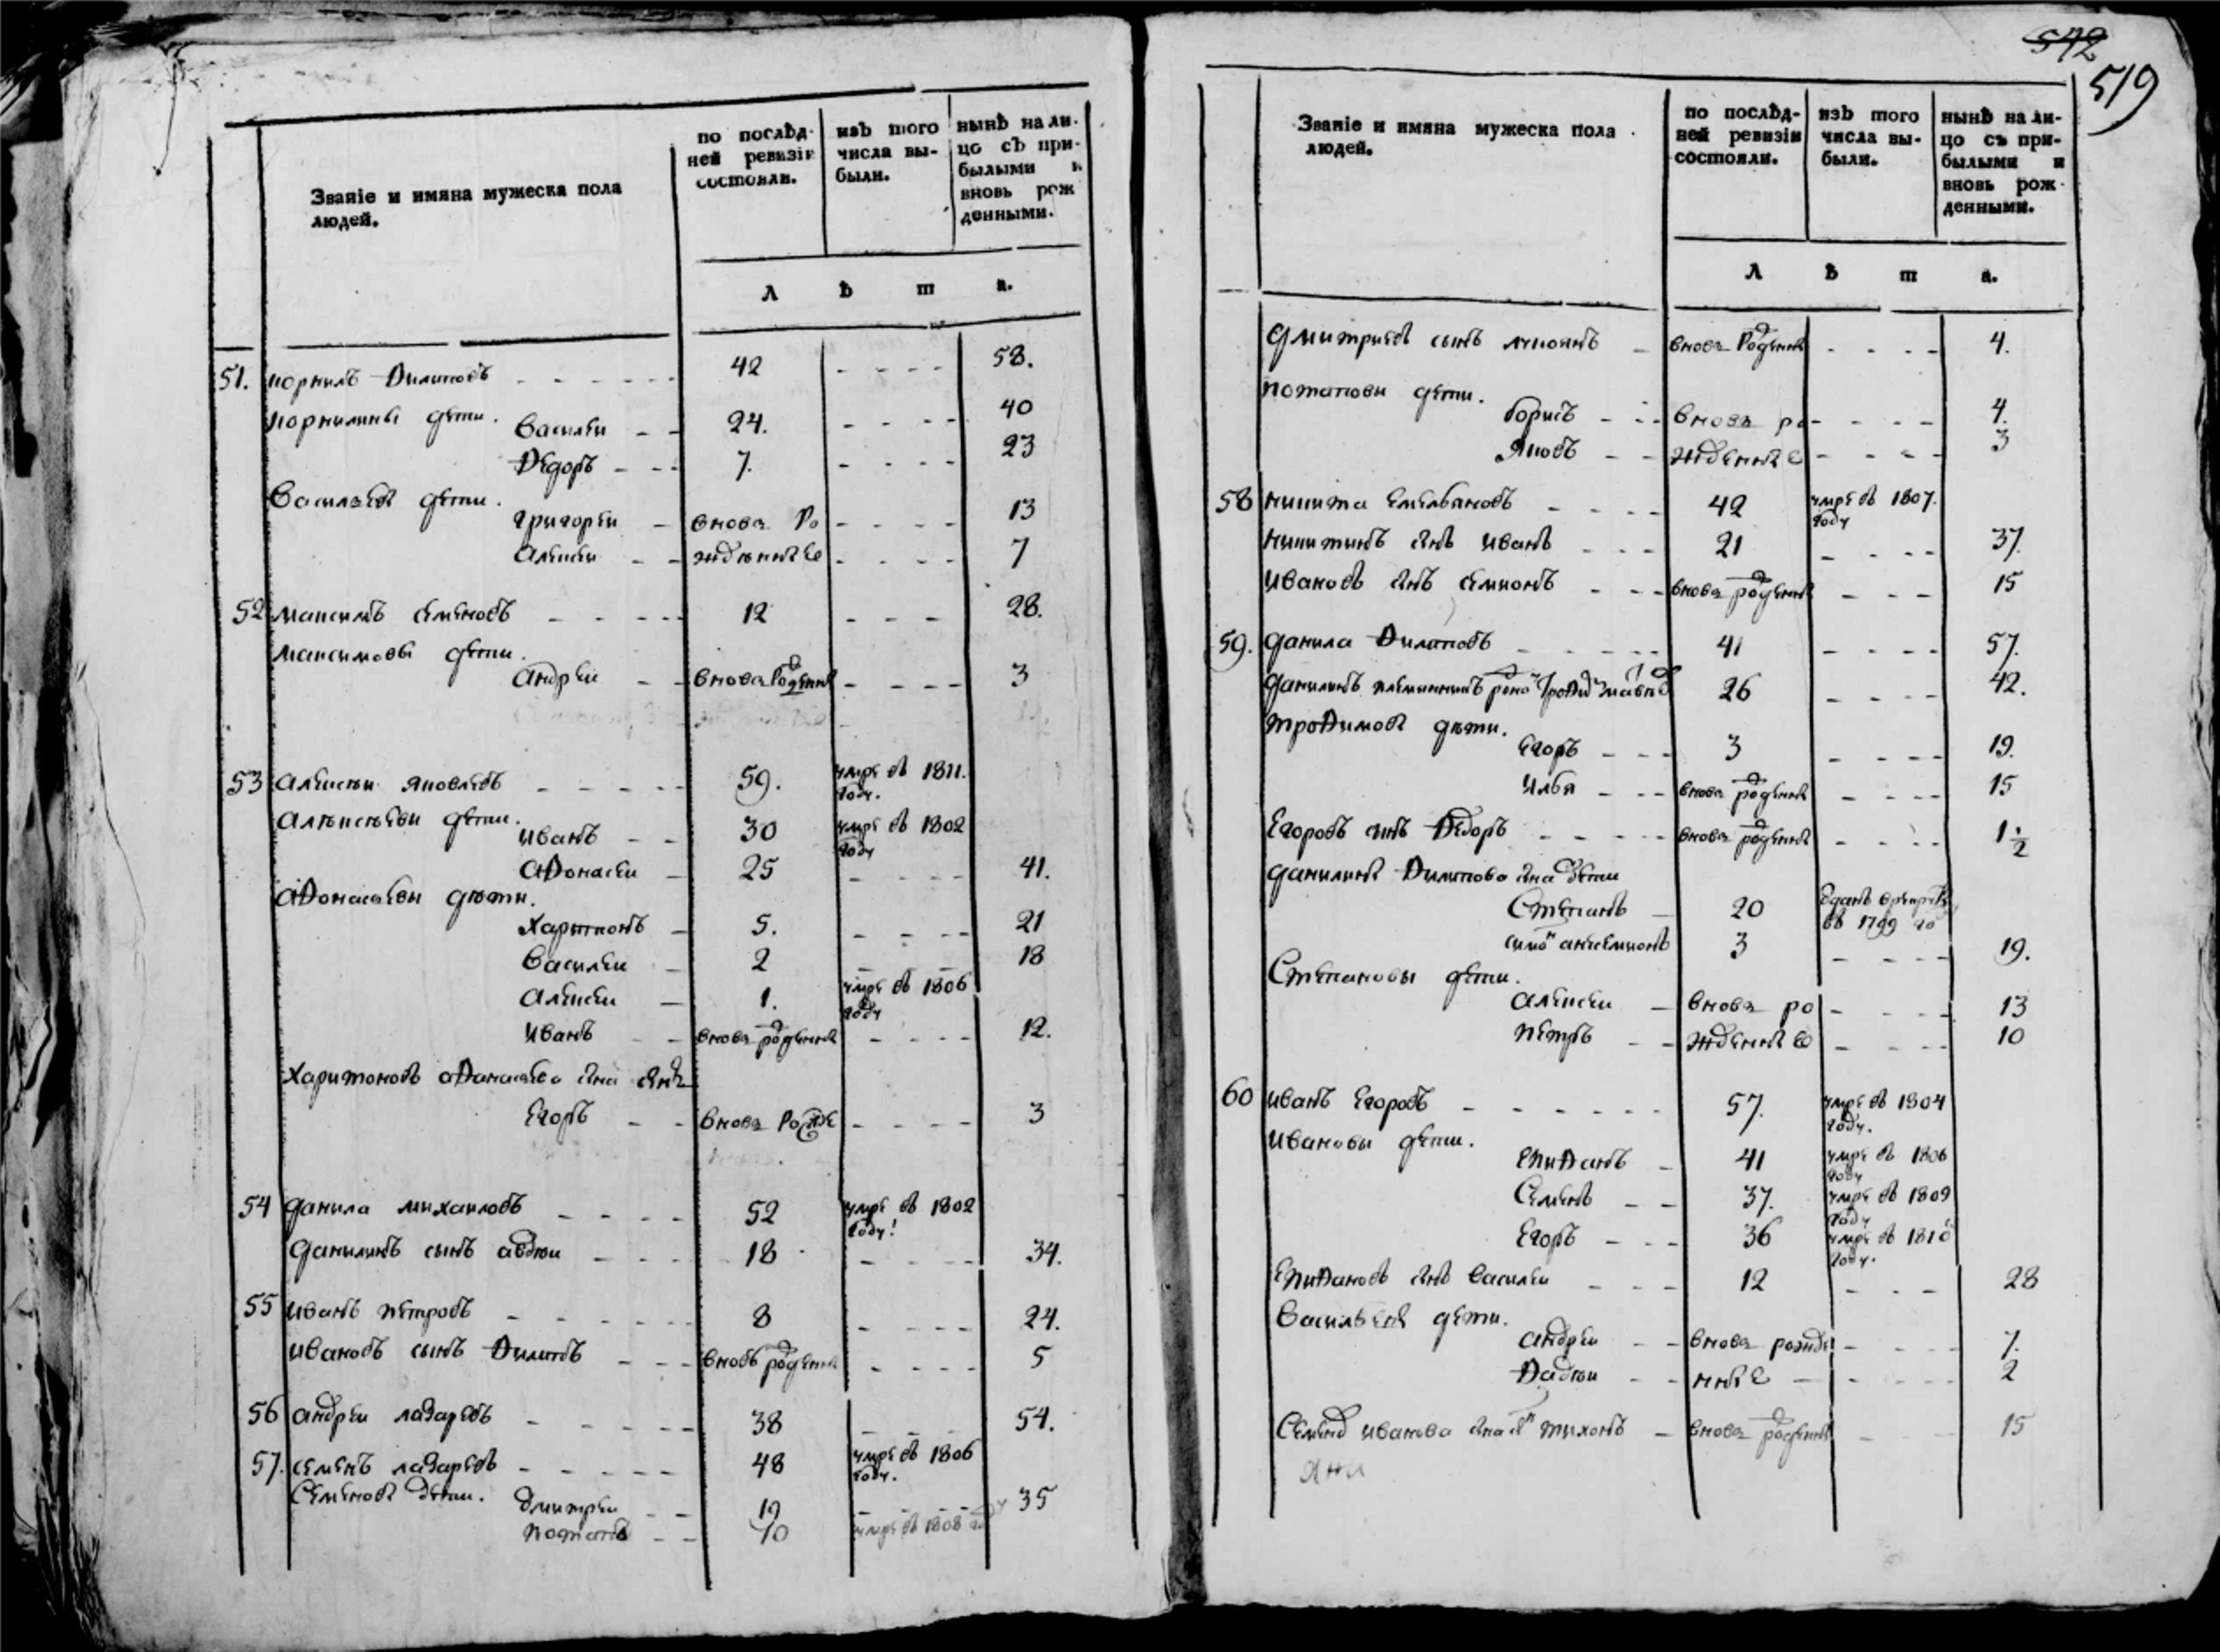 Званіе и имяна мужеска пола
людей.
по послѣд-
ней ревизіи
состояли.
изъ того
числа вы-
были.
нынѣ на ли-
цо съ при-
былыми и
вновь рож
денными.
Л ѣ т а.
51. корнилъ Филиповъ 42 58.
корниливы дети. Василеи 24. 40
Федоръ 7. 23
Васильевы дети. григореи внова Ро 13
Алексеи жденные 7
52 максимъ семеновъ 12 28.
максимовы дети.
Андреи внова Рожденны 3
53 Алексеи яковлевъ 59. умре въ 1811.
году.
Алексеевы дети. иванъ 30 умре въ 1802
году
аФонасеи 25 41.
аФонасьевы дети.
Харитонъ 5. 21
Василеи 2 18
Алексеи 1. умре въ 1806
году
иванъ внова рожденны 12.
Харитоновъ аФанасьева сна снъ
Егоръ внова Рожде 3
54 данила михаиловъ 52 умре въ 1802
году
данилинъ сынъ авдеи 18 34.
55 иванъ петровъ 8 24.
ивановъ сынъ Филипъ вновь рожденны 5
56 андреи лазаревъ 38 54.
57. семенъ лазаревъ 48 умре въ 1806
году.
Семеновы дети. Дмитреи 19 35
потапъ 10 умре въ 1808 году
542
519
Званіе и имяна мужеска пола
людей.
по послѣд-
ней ревизіи
состояли.
изъ того
числа вы-
были.
нынѣ на ли-
цо съ при-
былыми и
вновь рож-
денными.
Л ѣ т а.
дмитриевъ сынъ внова Рожденны 4.
потаповы дети.
борисъ внова ро 4.
Яковъ жденные 3
58 никита емельяновъ 42 умре въ 1807.
году
никитинъ снъ иванъ 21 37.
ивановъ снъ семионъ внова рожденны 15
59. данила Филиповъ 41 57.
данилинъ племянникъ 26 42.
троФимовы дети.
Егоръ 3 19.
илья внова рожденны 15
Егоровъ снъ Федоръ внова рожденны 1 1/2
данилины Филипова сна дети
Степанъ 20 въ 1799 го
3 19.
Степановы дети.
Алексеи внова ро 13
Петръ жденные 10
60 иванъ Егоровъ 57. умре въ 1804
году.
ивановы дети.
епиФанъ 41 умре въ 1806
году
Семенъ 37. умре въ 1809
году
Егоръ 36 умре въ 1810
году.
епиФановъ снъ Василеи 12 28
Васильевы дети.
Андреи внова рожде 7.
Фадеи нные 2
Семена иванова сна тихонъ внова рожденны 15